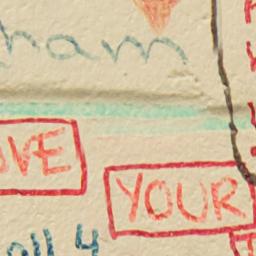 ham
OVE
YOUR
all 4